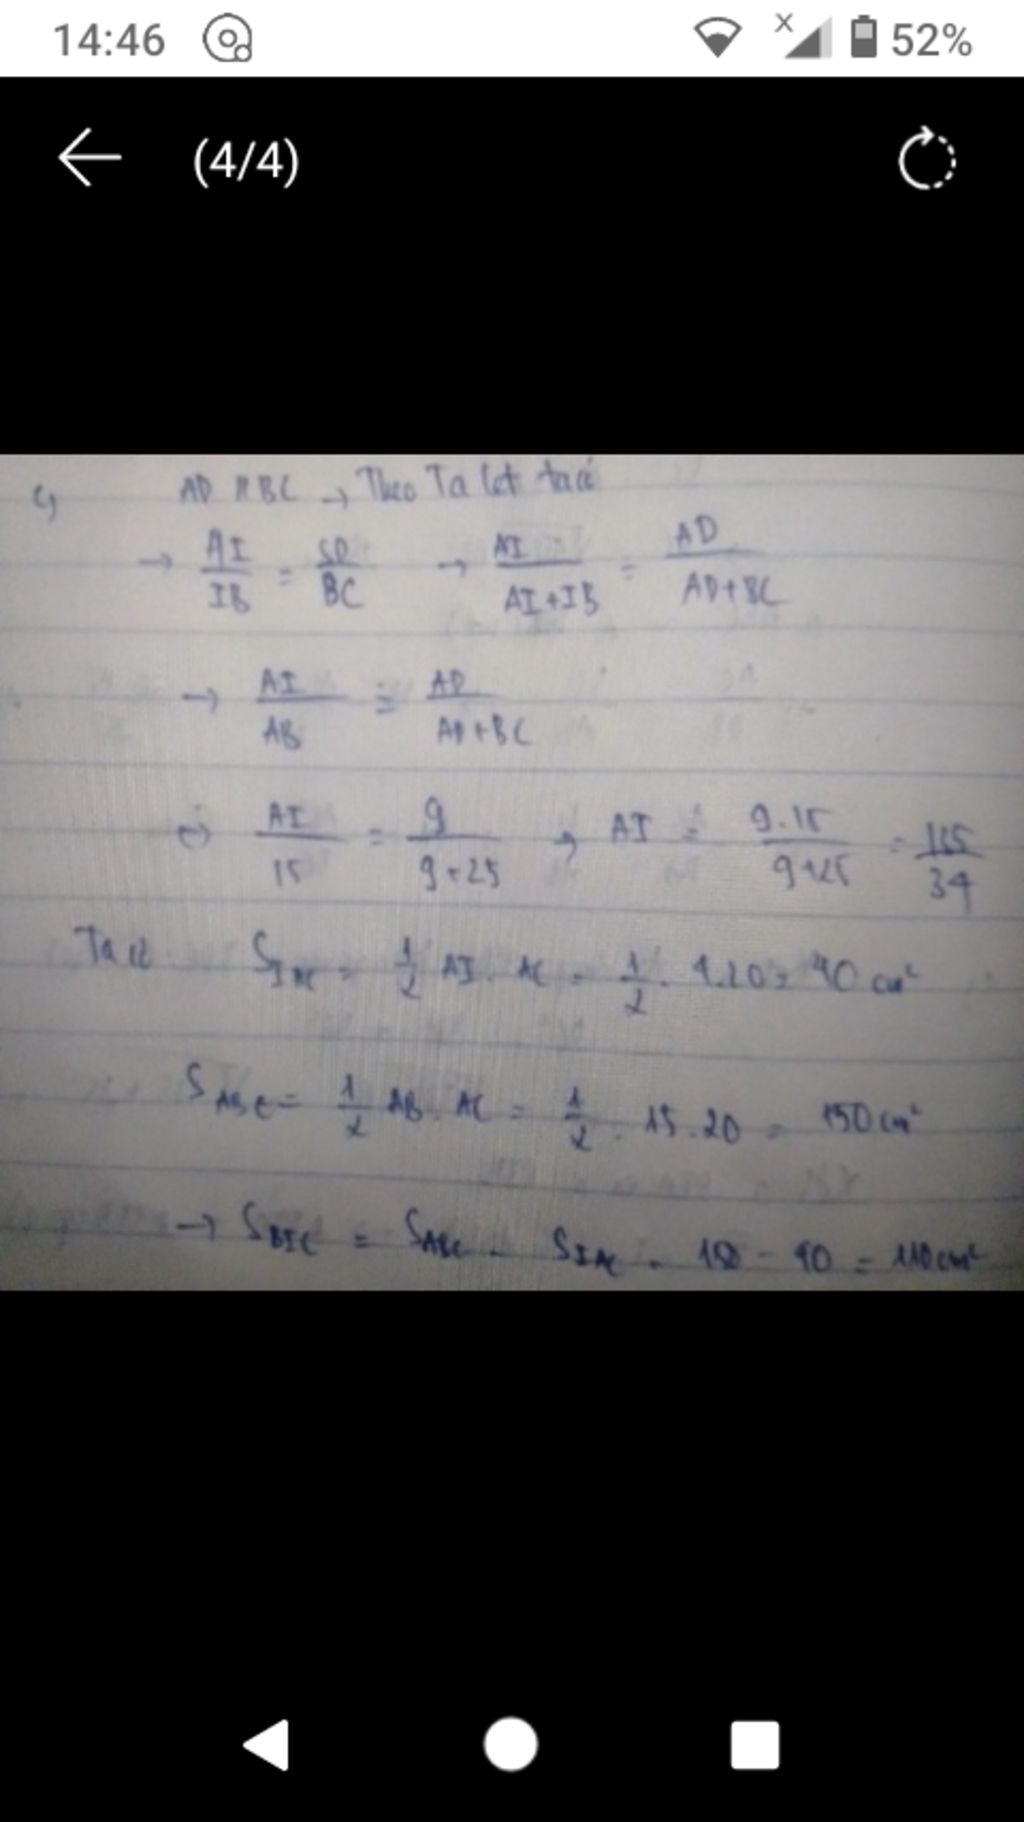 14:46 52%
(4/4)
c, AD // BC → Theo Ta let ta có
→ AI/IB = SD/BC → AI/AI+IB = AD/AD+BC
→ AI/AB = AD/AD+BC
⇔ AI/15 = 9/9+25 → AI = 9.15/9+25 = /34
Ta có S IAC = 1/2 AI. AC = 1/2 . 4.20 = 40 cm²
S ABC = 1/2 AB. AC = 1/2 . 15.20 = 150 cm²
→ S BIC = S ABC - S IAC = 150 - 40 = 110 cm²